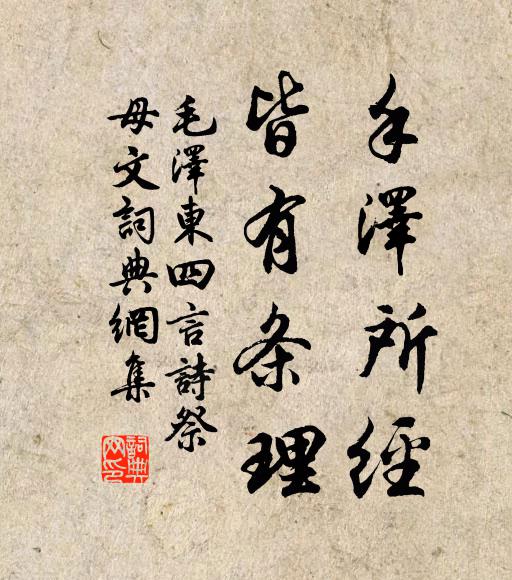 手澤所經
皆有条理
毛澤東四言詩祭
母文詞典網集
詞典
网印